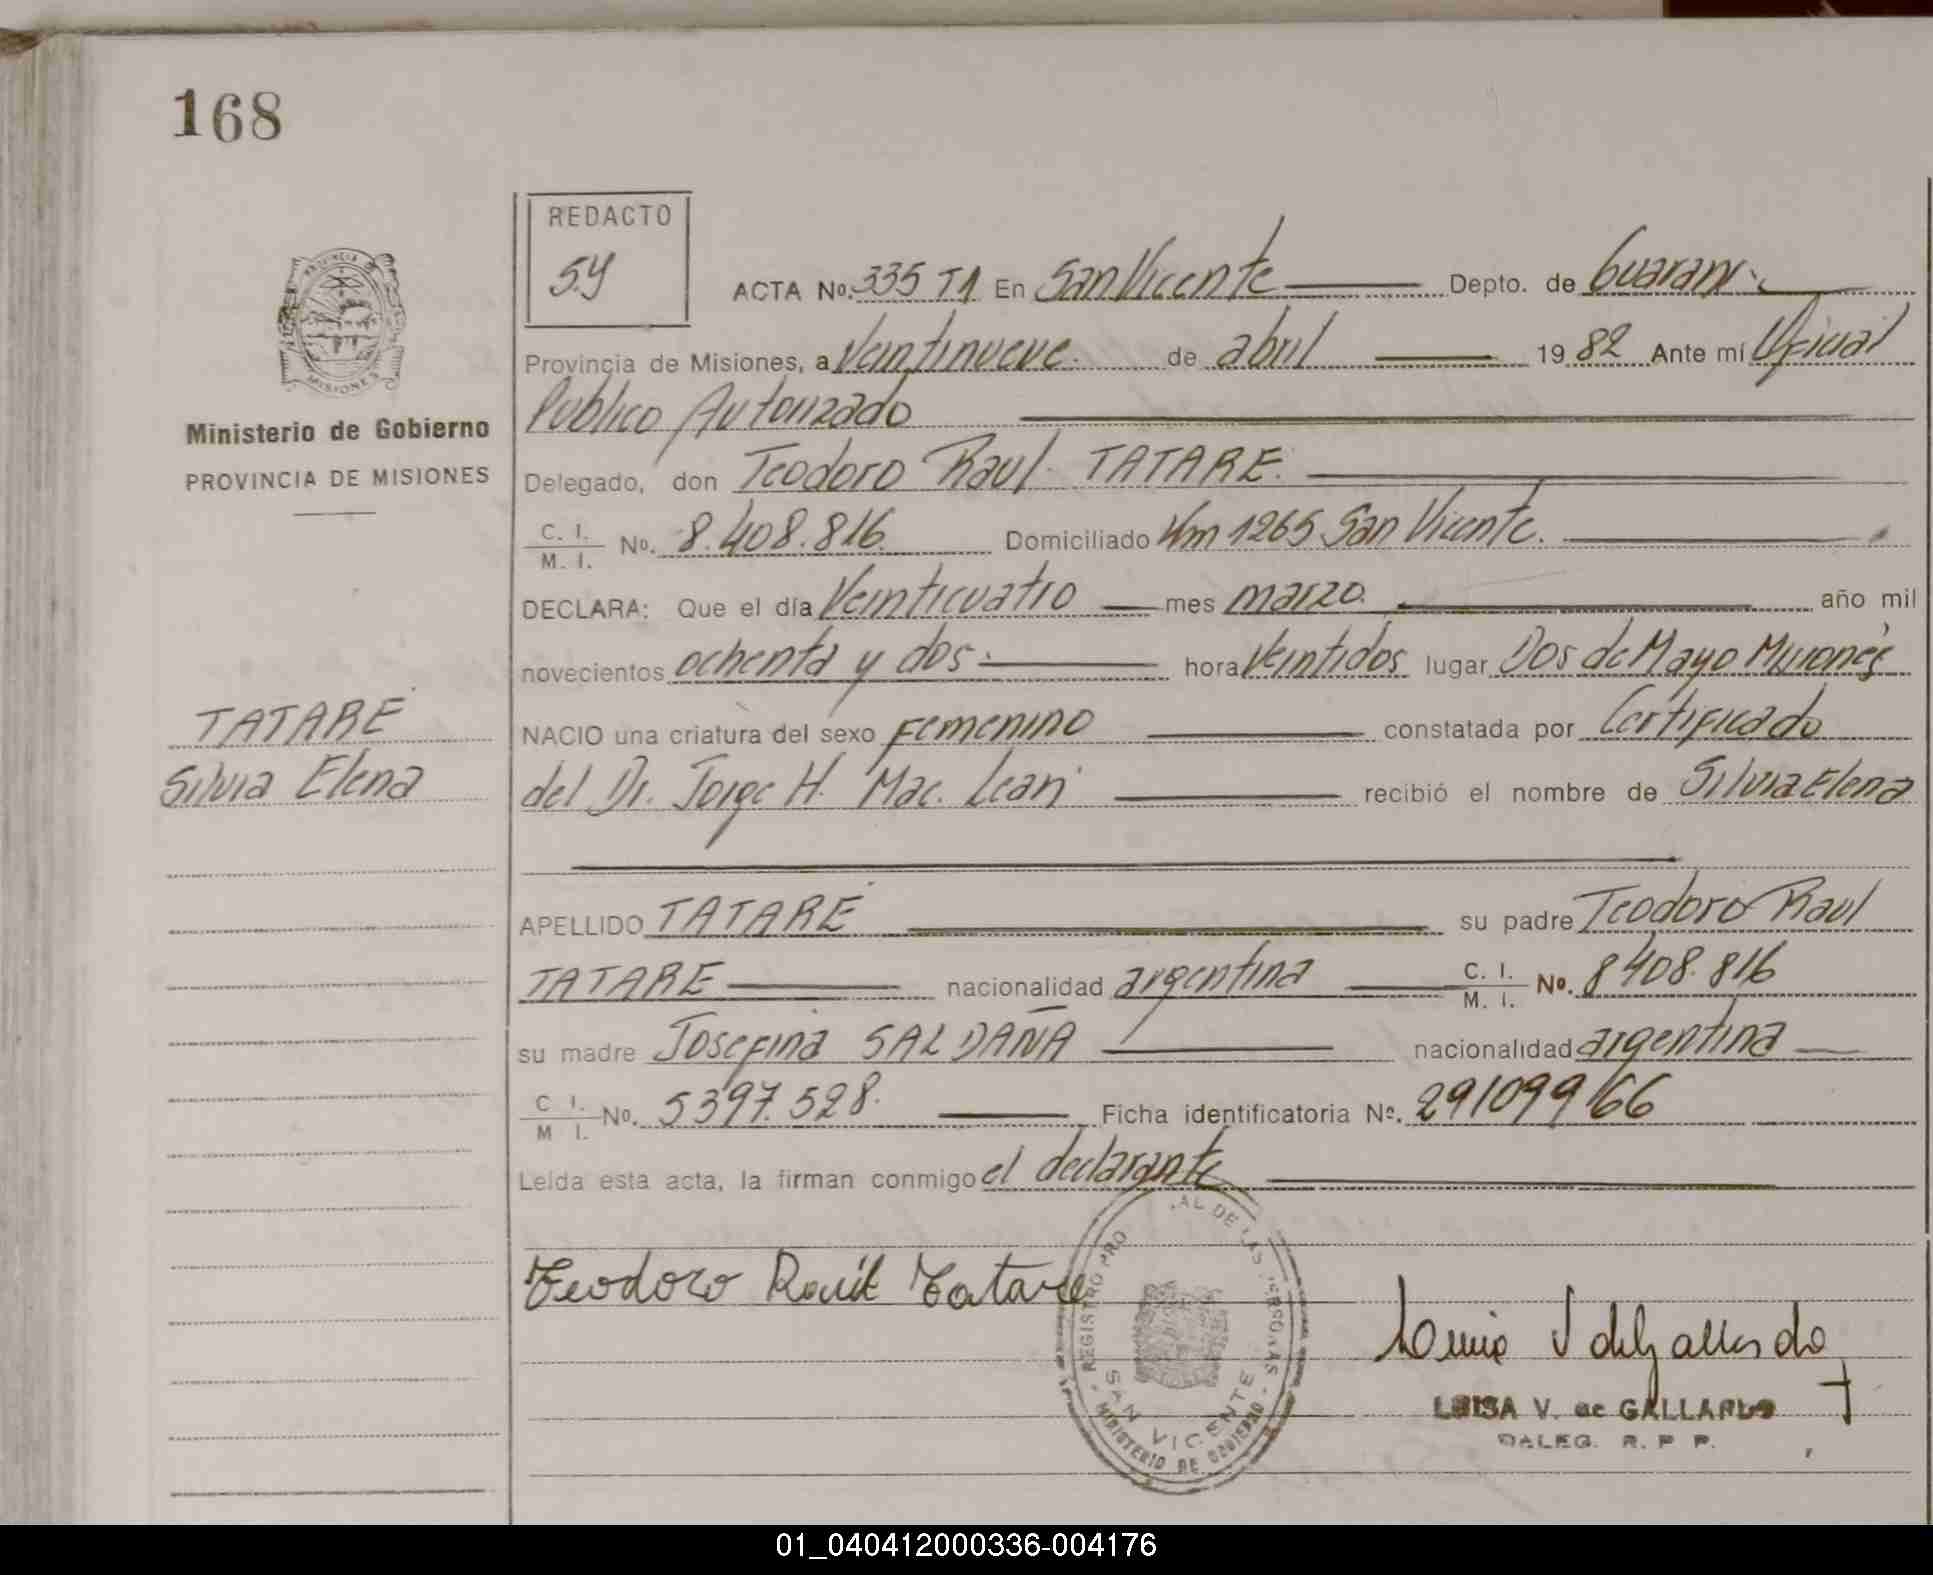 168
REDACTO
S.Y
PROVINCIA DE
MISIONES
Ministerio de Gobierno
PROVINCIA DE MISIONES
TATARE
Silvia Elena
ACTA No. 335 T1 En San Vicente Depto. de Guarani
Provincia de Misiones, a Veintinueve de abril 1982 Ante mí Oficial
Publico Autorizado
Delegado, don Teodoro Raul TATARE.
C. I. / M. I. No. 8.408.816. Domiciliado Km 1265 San Vicente.
DECLARA: Que el día Veinticuatro mes marzo. año mil
novecientos ochenta y dos hora Veintidos lugar Dos de Mayo Misiones
NACIO una criatura del sexo Femenino constatada por Certificado
del Dr. Jorge H. Mac. Lean recibió el nombre de Silvia Elena
APELLIDO TATARE su padre Teodoro Raul
TATARE nacionalidad argentina C. I. / M. I. No. 8408.816
su madre Josefina SALDAÑA nacionalidad argentina
C I. / M I. No. 5397.528. Ficha identificatoria Nº. 291099/66
Leída esta acta, la firman conmigo el declarante
Teodoro Raúl Tatare
REGISTRO PRO AL DE LAS PERSONAS
SAN VICENTE
MINISTERIO DE GOBIERNO
LUISA V. de GALLARDO
DALEG. R. P. P.
01_040412000336-004176